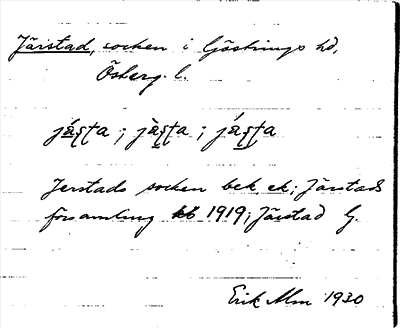 Järstad, socken i Göstrings hd,
Österg. l.
jáʂʈa ; jàʂʈa ; jáʂʈa
Jerstads socken bek ek; Järstads
församling kb 1919; Järstad G.
Erik Alm 1930